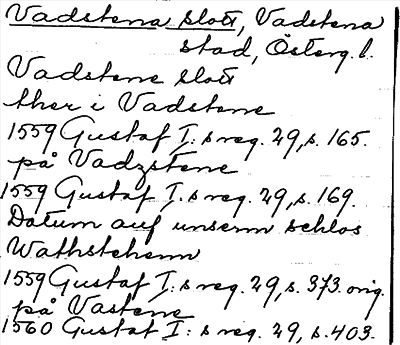 Vadstena slott, Vadstena
stad, Österg. l.
Vadstene slott
ther i Vadstene
1559 Gustaf I: s reg. 29, s. 165.
på Vadzstene
1559 Gustaf I. s reg. 29, s. 169.
Datum auf unserm schlos
Wathstehenn
1559 Gustaf I: s reg. 29, s. 373. orig.
på Vastene
1560 Gustaf I: s reg. 29, s. 403.